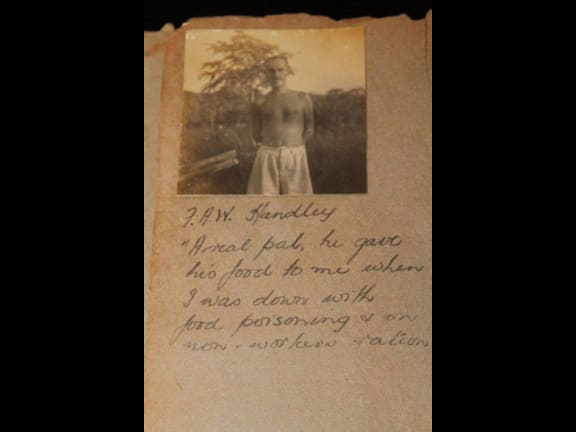 F.A.W. Handley
"A real pal, he gave
his food to me when
I was down with
food poisoning & on
non-workers ration